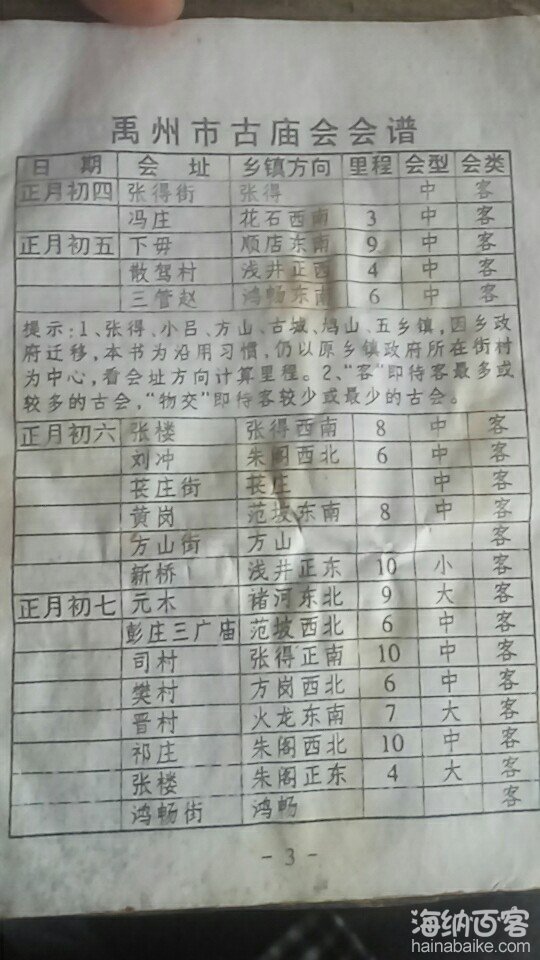 禹州市古庙会会谱
日期 会址 乡镇方向 里程 会型 会类
正月初四 张得街 张得 中 客
冯庄 花石西南 3 中 客
正月初五 下毋 顺店东南 9 中 客
散驾村 浅井正西 4 中 客
三管赵 鸿畅东南 6 中 客
提示:1、张得、小吕、方山、古城、鸠山、五乡镇,因乡政
府迁移,本书为沿用习惯,仍以原乡镇政府所在街村
为中心,看会址方向计算里程。2、“客”即待客最多或
较多的古会,“物交”即待客较少或最少的古会。
正月初六 张楼 张得西南 8 中 客
刘冲 朱阁西北 6 中 客
苌庄街 苌庄 中 客
黄岗 范坡东南 8 中 客
方山街 方山 客
新桥 浅井正东 10 小 客
正月初七 元木 褚河东北 9 大 客
彭庄三广庙 范坡西北 6 中 客
司村 张得正南 10 中 客
樊村 方岗西北 6 中 客
晋村 火龙东南 7 大 客
祁庄 朱阁西北 10 中 客
张楼 朱阁正东 4 大 客
鸿畅街 鸿畅 客
- 3 -
海纳百客
hainabaike.com